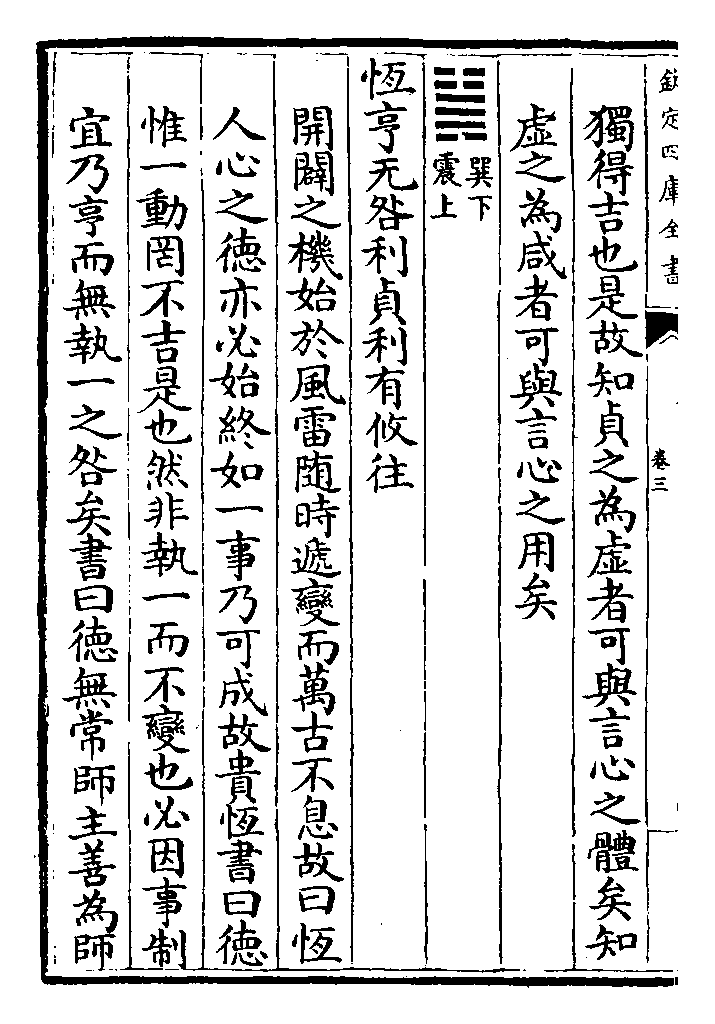 欽定四庫全書
卷三
獨得吉也是故知貞之為虛者可與言心之體矣知
虛之為咸者可與言心之用矣
巽下
震上
恆亨无咎利貞利有攸往
開闢之機始於風雷随時遞變而萬古不息故曰恆
人心之德亦必始終如一事乃可成故貴恆書曰德
惟一動罔不吉是也然非執一而不變也必因事制
宜乃亨而無執一之咎矣書曰德無常師主善為師